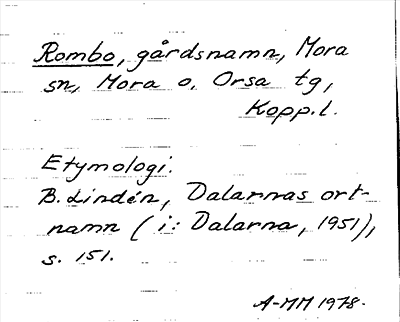 Rombo, gårdsnamn, Mora
sn, Mora o. Orsa tg,
Kopp.l.
Etymologi.
B. Lindén, Dalarnas ort-
namn (i: Dalarna, 1951),
s. 151.
A-MM 1978.